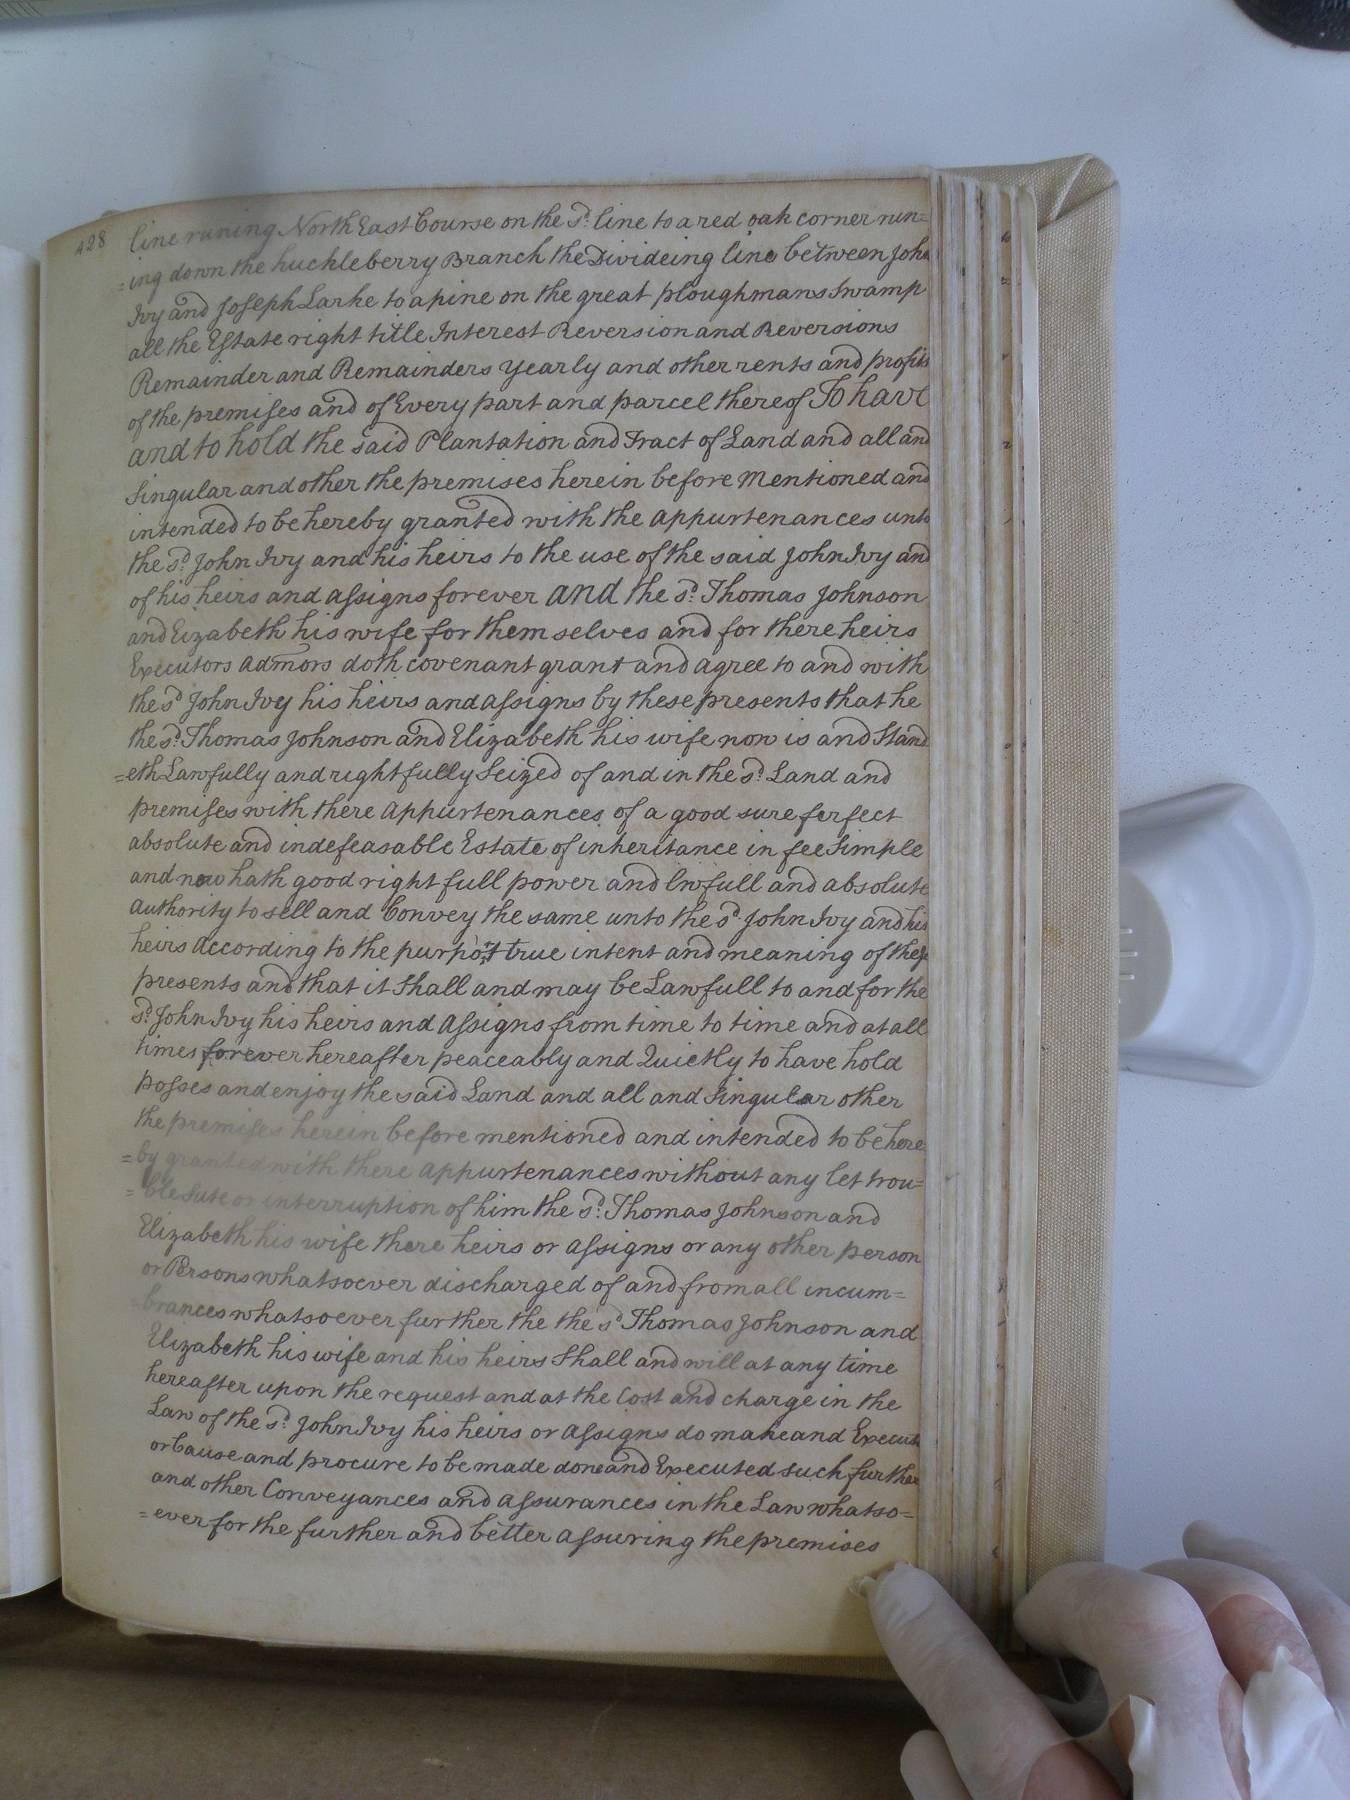 428
line runing North East Course on the sd. line to a red oak corner run=
=ing down the huckleberry Branch the Divideing line between John
Ivy and Joseph Larke to a pine on the great ploughmans Swamp
all the Estate right title Interest Reversion and Reversions
Remainder and Remainders yearly and other rents and profits
of the premises and of Every part and parcel thereof To have
and to hold the said Plantation and Tract of Land and all and
Singular and other the premises herein before Mentioned and
intended to be hereby granted with the appurtenances unto
the sd. John Ivy and his heirs to the use of the said John Ivy and
of his heirs and assigns forever and the sd. Thomas Johnson
and Eizabeth his wife for them selves and for there heirs
Executors admors doth covenant grant and agree to and with
the sd John Ivy his heirs and assigns by these presents that he
the sd. Thomas Johnson and Elizabeth his wife now is and Stand
=eth Lawfully and rightfully Seized of and in the sd. Land and
premises with there appurtenances of a good sure ferfect
absolute and indefeasable Estate of inheritance in fee Simple
and now hath good right full power and lwfull and absolute
authority to sell and Convey the same unto the sd. John Ivy and his
heirs according to the purport true intent and meaning of these
presents and that it Shall and may be Lawfull to and for the
sd. John Ivy his heirs and assigns from time to time and at all
times forever hereafter peaceably and Quietly to have hold
posses and enjoy the said Land and all and Singular other
the premises herein before mentioned and intended to be here
=by granted with there appurtenances without any let trou=
=ble sute or interruption of him the sd. Thomas Johnson and
Elizabeth his wife there heirs or assigns or any other person
or Persons whatsoever discharged of and from all incum=
=brances whatsoever further the the sd Thomas Johnson and
Elizabeth his wife and his heirs Shall and will at any time
hereafter upon the request and at the Cost and charge in the
Law of the sd. John Ivy his heirs or assigns do make and Execute
or Cause and procure to be made done and Executed such further
and other Conveyances and assurances in the Law whatso=
=ever for the further and better assuring the premises